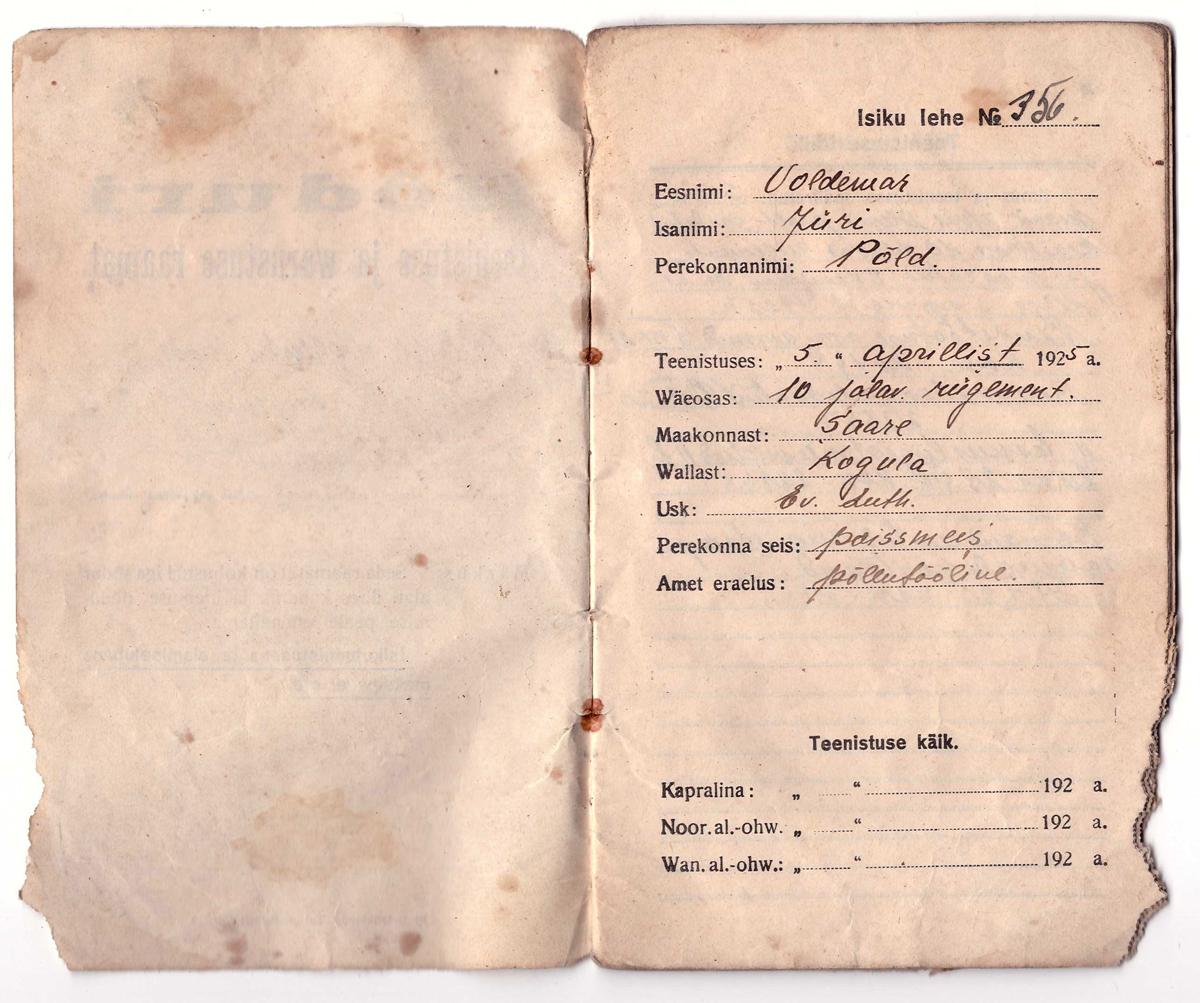 Isiku lehe № 356.
Eesnimi: Voldemar
Isanimi: Jüri
Perekonnanimi: Põld.
Teenistuses: „ 5. “ aprillist 1925 a.
Wäeosas: 10 jalav. rügement.
Maakonnast: Saare
Wallast: Kogula
Usk: Ev. luth.
Perekonna seis: poissmees
Amet eraelus: põllutööline.
Teenistuse käik.
Kapralina: „ “ 192 a.
Noor. al.-ohw. „ “ 192 a.
Wan. al.-ohw.: „ “ 192 a.